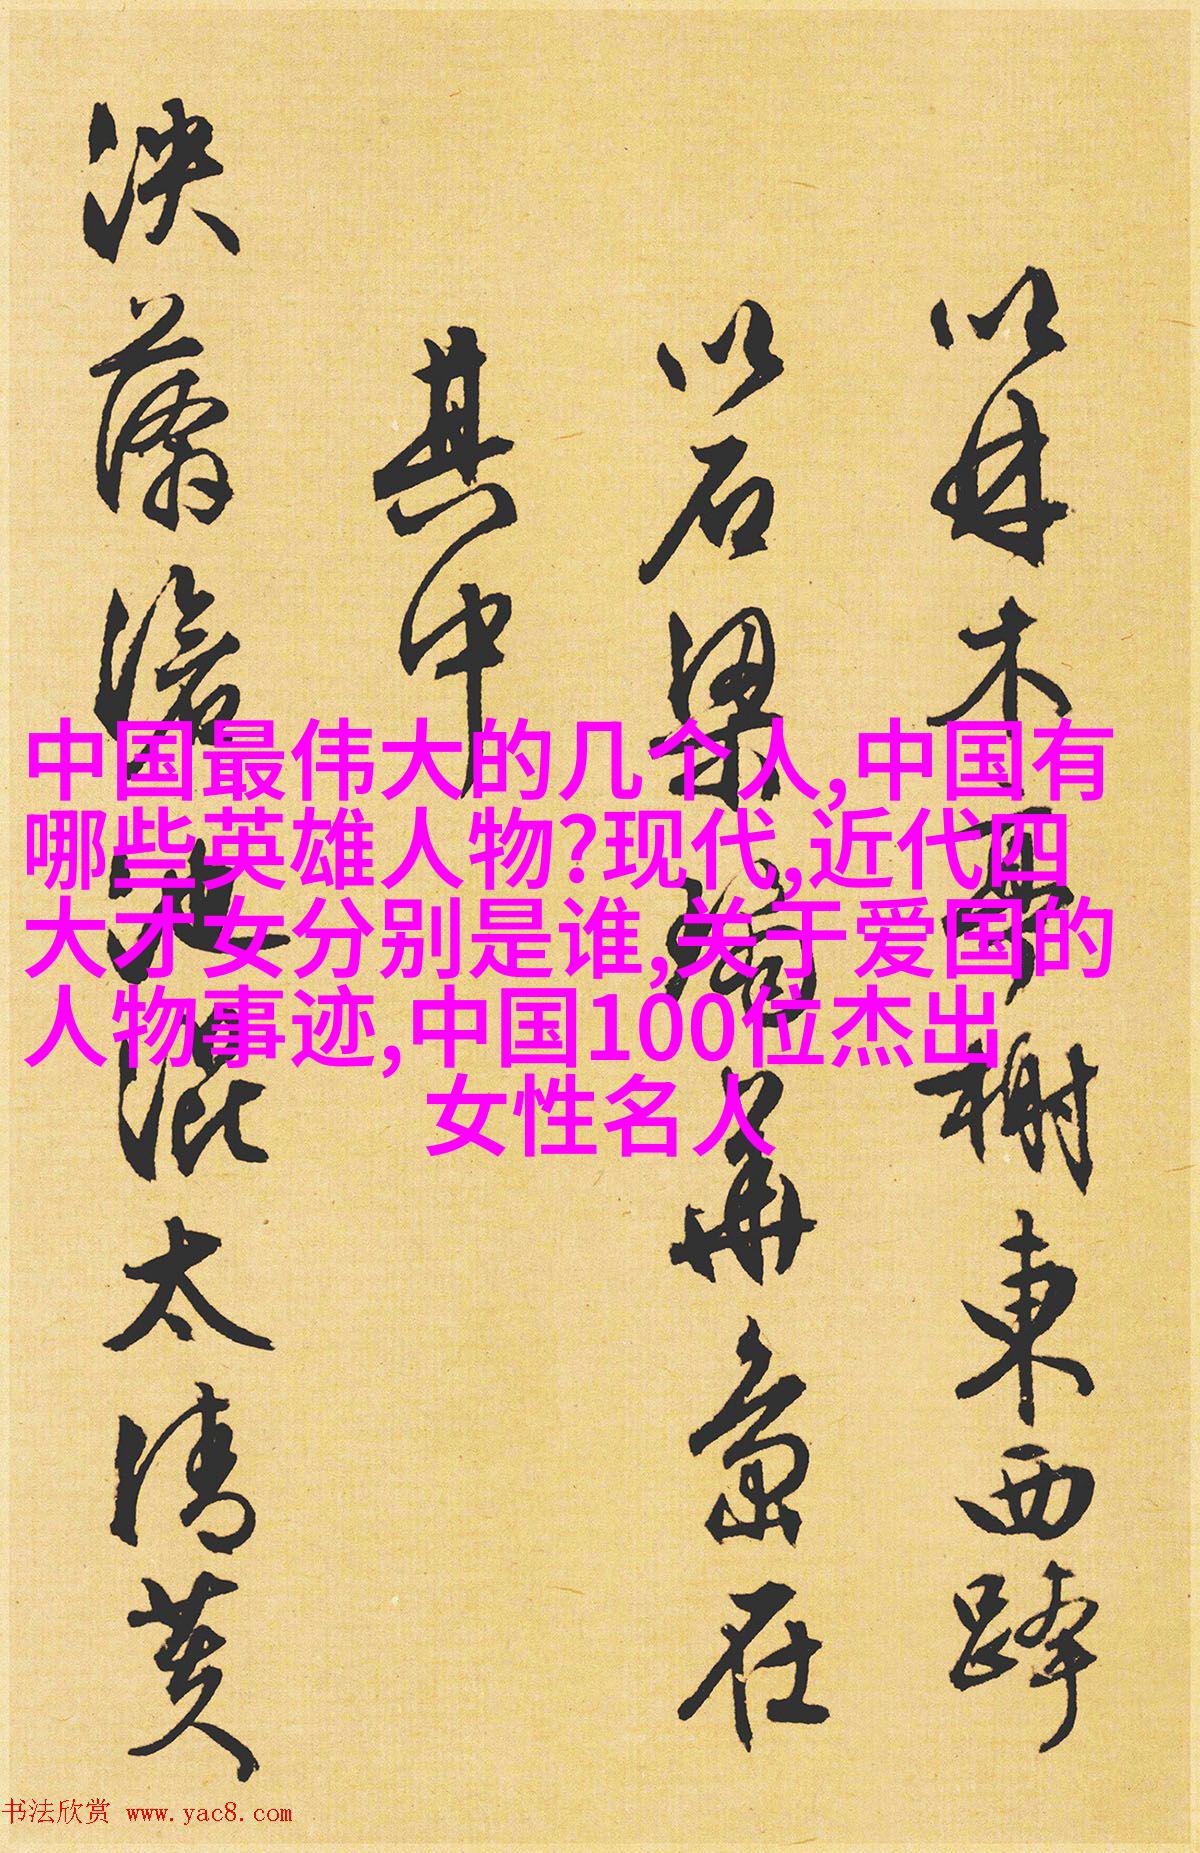 中国最伟大的几个人,中国有
哪些英雄人物?现代,近代四
大才女分别是谁,关于爱国的
人物事迹,中国100位杰出
女性名人
以林木榭東西跨
以石梁在
其中
泱滄池混太清
书法欣赏 www.yac8.com